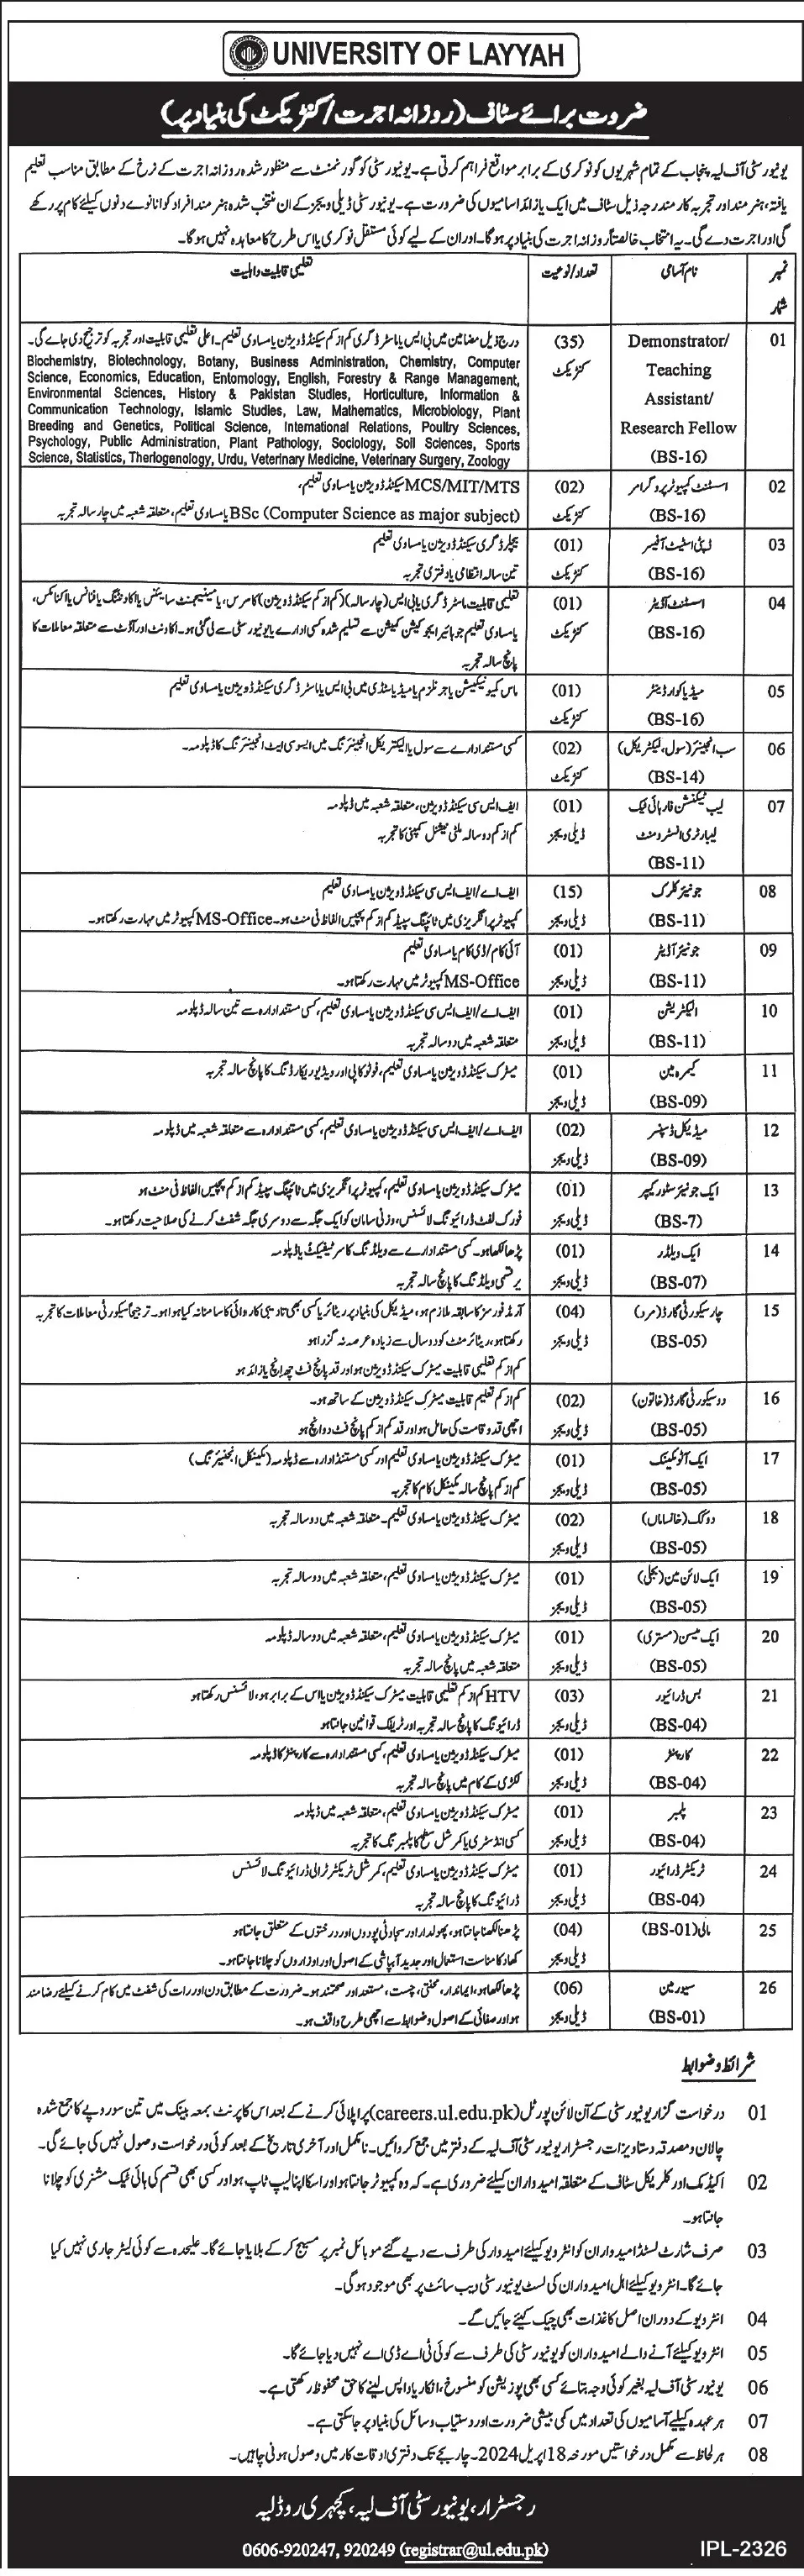 UNIVERSITY OF LAYYAH
ضرورت برائے سٹاف (روزانہ اجرت/کنٹریکٹ کی بنیاد پر)
یونیورسٹی آف لیہ پنجاب کے تمام شہریوں کو نوکری کے برابر مواقع فراہم کرتی ہے۔ یونیورسٹی کو گورنمنٹ سے منظور شدہ روزانہ اجرت کے نرخ کے مطابق مناسب تعلیم
یافتہ، ہنرمند اور تجربہ کار مندرجہ ذیل سٹاف میں ایک یا زائد اسامیوں کی ضرورت ہے۔ یونیورسٹی ڈیلی ویجز کے ان منتخب شدہ ہنرمند افراد کو انانوے دنوں کیلئے کام پر رکھے
گی اور اجرت دے گی۔ یہ انتخاب خالصتاً روزانہ اجرت کی بنیاد پر ہوگا۔ اور ان کے لیے کوئی مستقل نوکری یا اس طرح کا معاہدہ نہیں ہوگا۔
نمبر شمار نام آسامی تعداد/نوعیت تعلیمی قابلیت و اہلیت
01 Demonstrator/ (35) درج ذیل مضامین میں بی ایس یا ماسٹر ڈگری کم از کم سیکنڈ ڈویژن یا مساوی تعلیم۔ اعلی تعلیمی قابلیت اور تجربہ کو ترجیح دی جائے گی۔
Teaching کنٹریکٹ
Assistant/
Research Fellow
(BS-16)
Biochemistry, Biotechnology, Botany, Business Administration, Chemistry, Computer
Science, Economics, Education, Entomology, English, Forestry & Range Management,
Environmental Sciences, History & Pakistan Studies, Horticulture, Information &
Communication Technology, Islamic Studies, Law, Mathematics, Microbiology, Plant
Breeding and Genetics, Political Science, International Relations, Poultry Sciences,
Psychology, Public Administration, Plant Pathology, Sociology, Soil Sciences, Sports
Science, Statistics, Therlogenology, Urdu, Veterinary Medicine, Veterinary Surgery, Zoology
02 اسسٹنٹ کمپیوٹر پروگرامر (02) MCS/MIT/MTS سیکنڈ ڈویژن یا مساوی تعلیم،
(BS-16) کنٹریکٹ BSc (Computer Science as major subject) یا مساوی تعلیم، متعلقہ شعبہ میں چار سالہ تجربہ
03 ڈپٹی اسٹیٹ آفیسر (01) بیچلر ڈگری سیکنڈ ڈویژن یا مساوی تعلیم
(BS-16) کنٹریکٹ تین سالہ انتظامی یا دفتری تجربہ
04 اسسٹنٹ آڈیٹر (01) تعلیمی قابلیت ماسٹر ڈگری یا بی ایس (چار سالہ) (کم از کم سیکنڈ ڈویژن) کامرس، یا مینیجمنٹ سائینس یا اکاونٹنگ یا فنانس یا اکنامکس،
(BS-16) کنٹریکٹ یا مساوی تعلیم جو ہائیر ایجوکیشن کمیشن سے تسلیم شدہ کسی ادارے یا یونیورسٹی سے لی گئی ہو۔ اکاونٹ اور آڈٹ سے متعلقہ معاملات کا
پانچ سالہ تجربہ
05 میڈیا کوارڈینٹر (01) ماس کمیونیکیشن یا جرنلزم یا میڈیا سٹڈی میں بی ایس یا ماسٹر ڈگری سیکنڈ ڈویژن یا مساوی تعلیم
(BS-16) کنٹریکٹ
06 سب انجینئر (سول، الیکٹریکل) (02) کسی مستند ادارے سے سول یا الیکٹریکل انجینئرنگ میں ایسوسی ایٹ انجینئرنگ کا ڈپلومہ۔
(BS-14) کنٹریکٹ
07 لیب ٹیکنشن فار ہائی ٹیک (01) ایف ایس سی سیکنڈ ڈویژن، متعلقہ شعبہ میں ڈپلومہ
لیبارٹری انسٹرومنٹ ڈیلی ویجز کم از کم دو سالہ ملٹی نیشنل کمپنی کا تجربہ
(BS-11)
08 جونیئر کلرک (15) ایف اے/ایف ایس سی سیکنڈ ڈویژن یا مساوی تعلیم
(BS-11) ڈیلی ویجز کمپیوٹر پر انگریزی میں ٹائپنگ سپیڈ کم از کم پچیس الفاظ فی منٹ ہو۔ MS-Office کمپیوٹر میں مہارت رکھتا ہو۔
09 جونیئر آڈیٹر (01) آئی کام/ڈی کام یا مساوی تعلیم
(BS-11) ڈیلی ویجز MS-Office کمپیوٹر میں مہارت رکھتا ہو۔
10 الیکٹریشن (01) ایف اے/ایف ایس سی سیکنڈ ڈویژن یا مساوی تعلیم، کسی مستند ادارہ سے تین سالہ ڈپلومہ،
(BS-11) ڈیلی ویجز متعلقہ شعبہ میں دو سالہ تجربہ
11 کیمرہ مین (01) میٹرک سیکنڈ ڈویژن یا مساوی تعلیم، فوٹو کاپی اور ویڈیو ریکارڈنگ کا پانچ سالہ تجربہ
(BS-09) ڈیلی ویجز
12 میڈیکل ڈسپنسر (02) ایف اے/ایف ایس سی سیکنڈ ڈویژن یا مساوی تعلیم، کسی مستند ادارہ سے متعلقہ شعبہ میں ڈپلومہ
(BS-09) ڈیلی ویجز
13 ایک جونیئر سٹور کیپر (01) میٹرک سیکنڈ ڈویژن یا مساوی تعلیم، کمپیوٹر پر انگریزی میں ٹائپنگ سپیڈ کم از کم پچیس الفاظ فی منٹ ہو
(BS-7) ڈیلی ویجز فورک لفٹ ڈرائیونگ لائسنس، وزنی سامان کو ایک جگہ سے دوسری جگہ شفٹ کرنے کی صلاحیت رکھتا ہو۔
14 ایک ویلڈر (01) پڑھا لکھا ہو۔ کسی مستند ادارے سے ویلڈنگ کا سرٹیفکیٹ یا ڈپلومہ
(BS-07) ڈیلی ویجز برقی ویلڈنگ کا پانچ سالہ تجربہ
15 چار سیکورٹی گارڈ (مرد) (04) آرمڈ فورسز کا سابقہ ملازم ہو، میڈیکل کی بنیاد پر ریٹائر یا کسی بھی تادیبی کاروائی کا سامنا نہ کیا ہوا ہو۔ ترجیحاً سیکورٹی معاملات کا تجربہ
(BS-05) ڈیلی ویجز رکھتا ہو، ریٹائرمنٹ کو دو سال سے زیادہ عرصہ نہ گزرا ہو
کم از کم تعلیمی قابلیت میٹرک سیکنڈ ڈویژن ہو اور قد پانچ فٹ چھ انچ یا زائد ہو
16 دو سیکورٹی گارڈ (خاتون) (02) کم از کم تعلیم قابلیت میٹرک سیکنڈ ڈویژن کے ساتھ ہو۔
(BS-05) ڈیلی ویجز اچھی قد و قامت کی حامل ہو اور قد کم از کم پانچ فٹ دو انچ ہو
17 ایک آٹو مکینک (01) میٹرک سیکنڈ ڈویژن یا مساوی تعلیم اور کسی مستند ادارہ سے ڈپلومہ (مکینکل انجنیئرنگ)
(BS-05) ڈیلی ویجز کم از کم پانچ سالہ مکینکل کام کا تجربہ
18 دو کک (خانساماں) (02) میٹرک سیکنڈ ڈویژن یا مساوی تعلیم۔ متعلقہ شعبہ میں دو سالہ تجربہ
(BS-05) ڈیلی ویجز
19 ایک لائن مین (بجلی) (01) میٹرک سیکنڈ ڈویژن یا مساوی تعلیم، متعلقہ شعبہ میں دو سالہ تجربہ
(BS-05) ڈیلی ویجز
20 ایک میسن (مستری) (01) میٹرک سیکنڈ ڈویژن یا مساوی تعلیم، متعلقہ شعبہ میں دو سالہ ڈپلومہ
(BS-05) ڈیلی ویجز متعلقہ شعبہ میں پانچ سالہ تجربہ
21 بس ڈرائیور (03) HTV کم از کم تعلیمی قابلیت میٹرک سیکنڈ ڈویژن یا اس کے برابر ہو، لائسنس رکھتا ہو
(BS-04) ڈیلی ویجز ڈرائیونگ کا پانچ سالہ تجربہ اور ٹریفک قوانین جانتا ہو
22 کارپنٹر (01) میٹرک سیکنڈ ڈویژن یا مساوی تعلیم، کسی مستند ادارہ سے کارپنٹر کا ڈپلومہ
(BS-04) ڈیلی ویجز لکڑی کے کام میں پانچ سالہ تجربہ
23 پلمبر (01) میٹرک سیکنڈ ڈویژن یا مساوی تعلیم، متعلقہ شعبہ میں ڈپلومہ
(BS-04) ڈیلی ویجز کسی انڈسٹری یا کمرشل سطح کا پلمبرنگ کا تجربہ
24 ٹریکٹر ڈرائیور (01) میٹرک سیکنڈ ڈویژن یا مساوی تعلیم، کمرشل ٹریکٹر ٹرالی ڈرائیونگ لائسنس
(BS-04) ڈیلی ویجز ڈرائیونگ کا پانچ سالہ تجربہ
25 مالی (BS-01) (04) پڑھنا لکھنا جانتا ہو، پھولدار اور سجاوٹی پودوں اور درختوں کے متعلق جانتا ہو
ڈیلی ویجز کھاد کا مناسب استعمال اور جدید آبپاشی کے اصول اور اوزاروں کو چلانا جانتا ہو۔
26 سیور مین (06) پڑھا لکھا ہو، ایماندار، محنتی، چست، مستعد اور صحتمند ہو۔ ضرورت کے مطابق دن اور رات کی شفٹ میں کام کرنے کیلئے رضامند
(BS-01) ڈیلی ویجز ہو اور صفائی کے اصول و ضوابط سے اچھی طرح واقف ہو۔
شرائط و ضوابط
01 درخواست گزار یونیورسٹی کے آن لائن پورٹل (careers.ul.edu.pk) پر اپلائی کرنے کے بعد اس کا پرنٹ بمعہ بینک میں تین سو روپے کا جمع شدہ
چالان و مصدقہ دستاویزات رجسٹرار یونیورسٹی آف لیہ کے دفتر میں جمع کروائیں۔ نامکمل اور آخری تاریخ کے بعد کوئی درخواست وصول نہیں کی جائے گی۔
02 اکیڈمک اور کلریکل سٹاف کے متعلقہ امیدواران کیلئے ضروری ہے۔ کہ وہ کمپیوٹر جانتا ہو اور اسکا اپنا لیپ ٹاپ ہو اور کسی بھی قسم کی ہائی ٹیک مشنری کو چلانا
جانتا ہو۔
03 صرف شارٹ لسٹڈ امیدواران کو انٹرویو کیلئے امیدوار کی طرف سے دیے گئے موبائل نمبر پر میسج کر کے بلایا جائے گا۔ علیحدہ سے کوئی لیٹر جاری نہیں کیا
جائے گا۔ انٹرویو کیلئے اہل امیدواران کی لسٹ یونیورسٹی ویب سائٹ پر بھی موجود ہوگی۔
04 انٹرویو کے دوران اصل کاغذات بھی چیک کیئے جائیں گے۔
05 انٹرویو کیلئے آنے والے امیدواران کو یونیورسٹی کی طرف سے کوئی ٹی اے ڈی اے نہیں دیا جائے گا۔
06 یونیورسٹی آف لیہ بغیر کوئی وجہ بتائے کسی بھی پوزیشن کو منسوخ، انکار یا واپس لینے کا حق محفوظ رکھتی ہے۔
07 ہر عہدہ کیلئے آسامیوں کی تعداد میں کمی بیشی ضرورت اور دستیاب وسائل کی بنیاد پر جا سکتی ہے۔
08 ہر لحاظ سے مکمل درخواستیں مورخہ 18 اپریل 2024۔ چار بجے تک دفتری اوقات کار میں وصول ہونی چاہیں۔
رجسٹرار، یونیورسٹی آف لیہ، کچہری روڈ لیہ
0606-920247, 920249 (registrar@ul.edu.pk)
IPL-2326